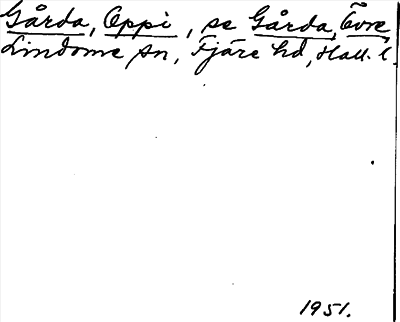 Gårda, Oppi, se Gårda, Övre,
Lindome sn, Fjäre hd, Hall. l.
1951.